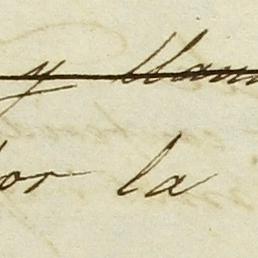 y llam
por la